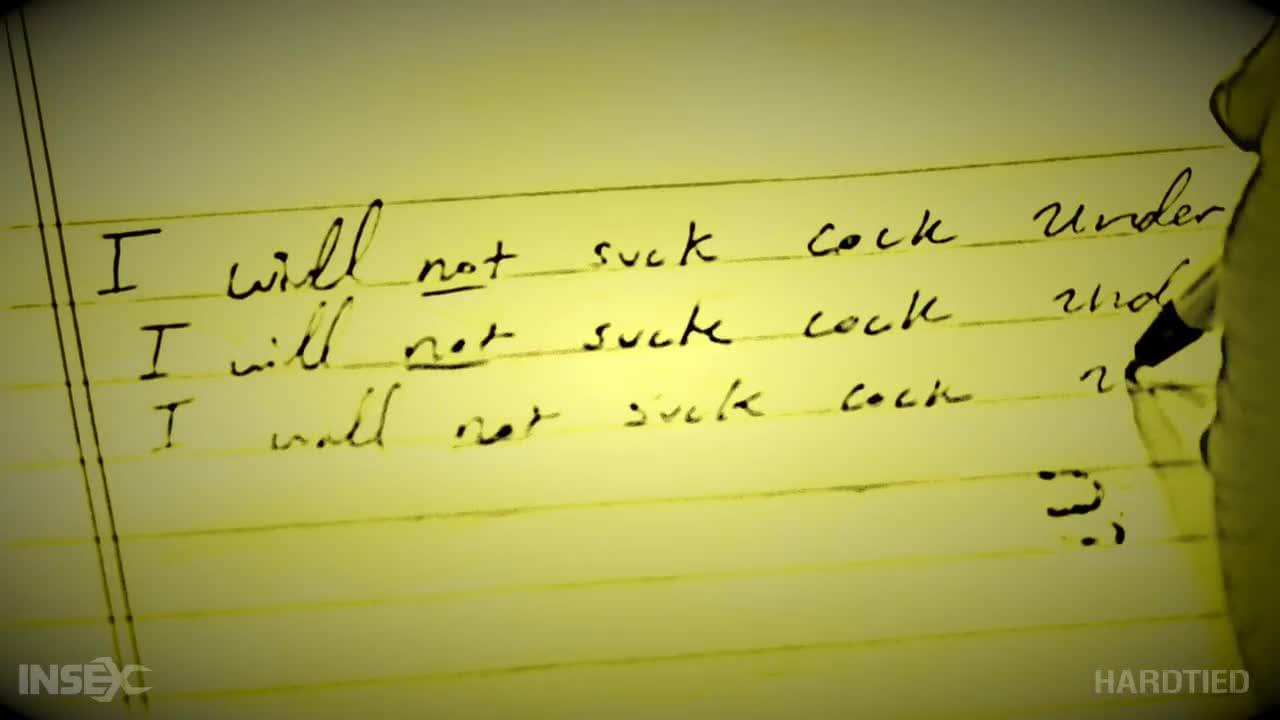 I will not suck cock Under
I will not suck cock und
I will not suck cock
INSEXC
HARDTIED